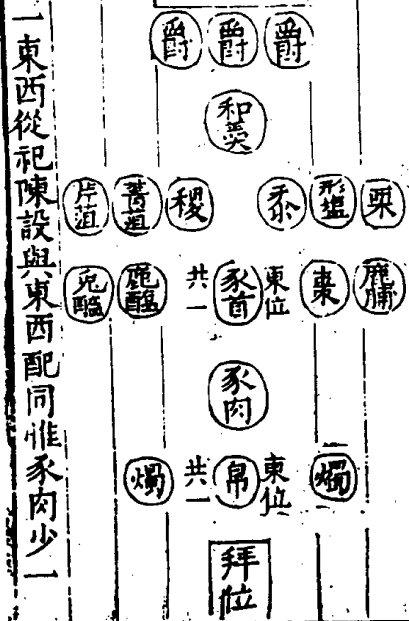 爵 爵 爵
和羹
栗 形鹽 黍 稷 菁菹 芹菹
鹿脯 棗 東位 豕首 共一 鹿醢 兔醢
豕肉
燭 東位 帛 共一 燭
拜位
一東西從祀陳設與東西配同惟豕肉少一